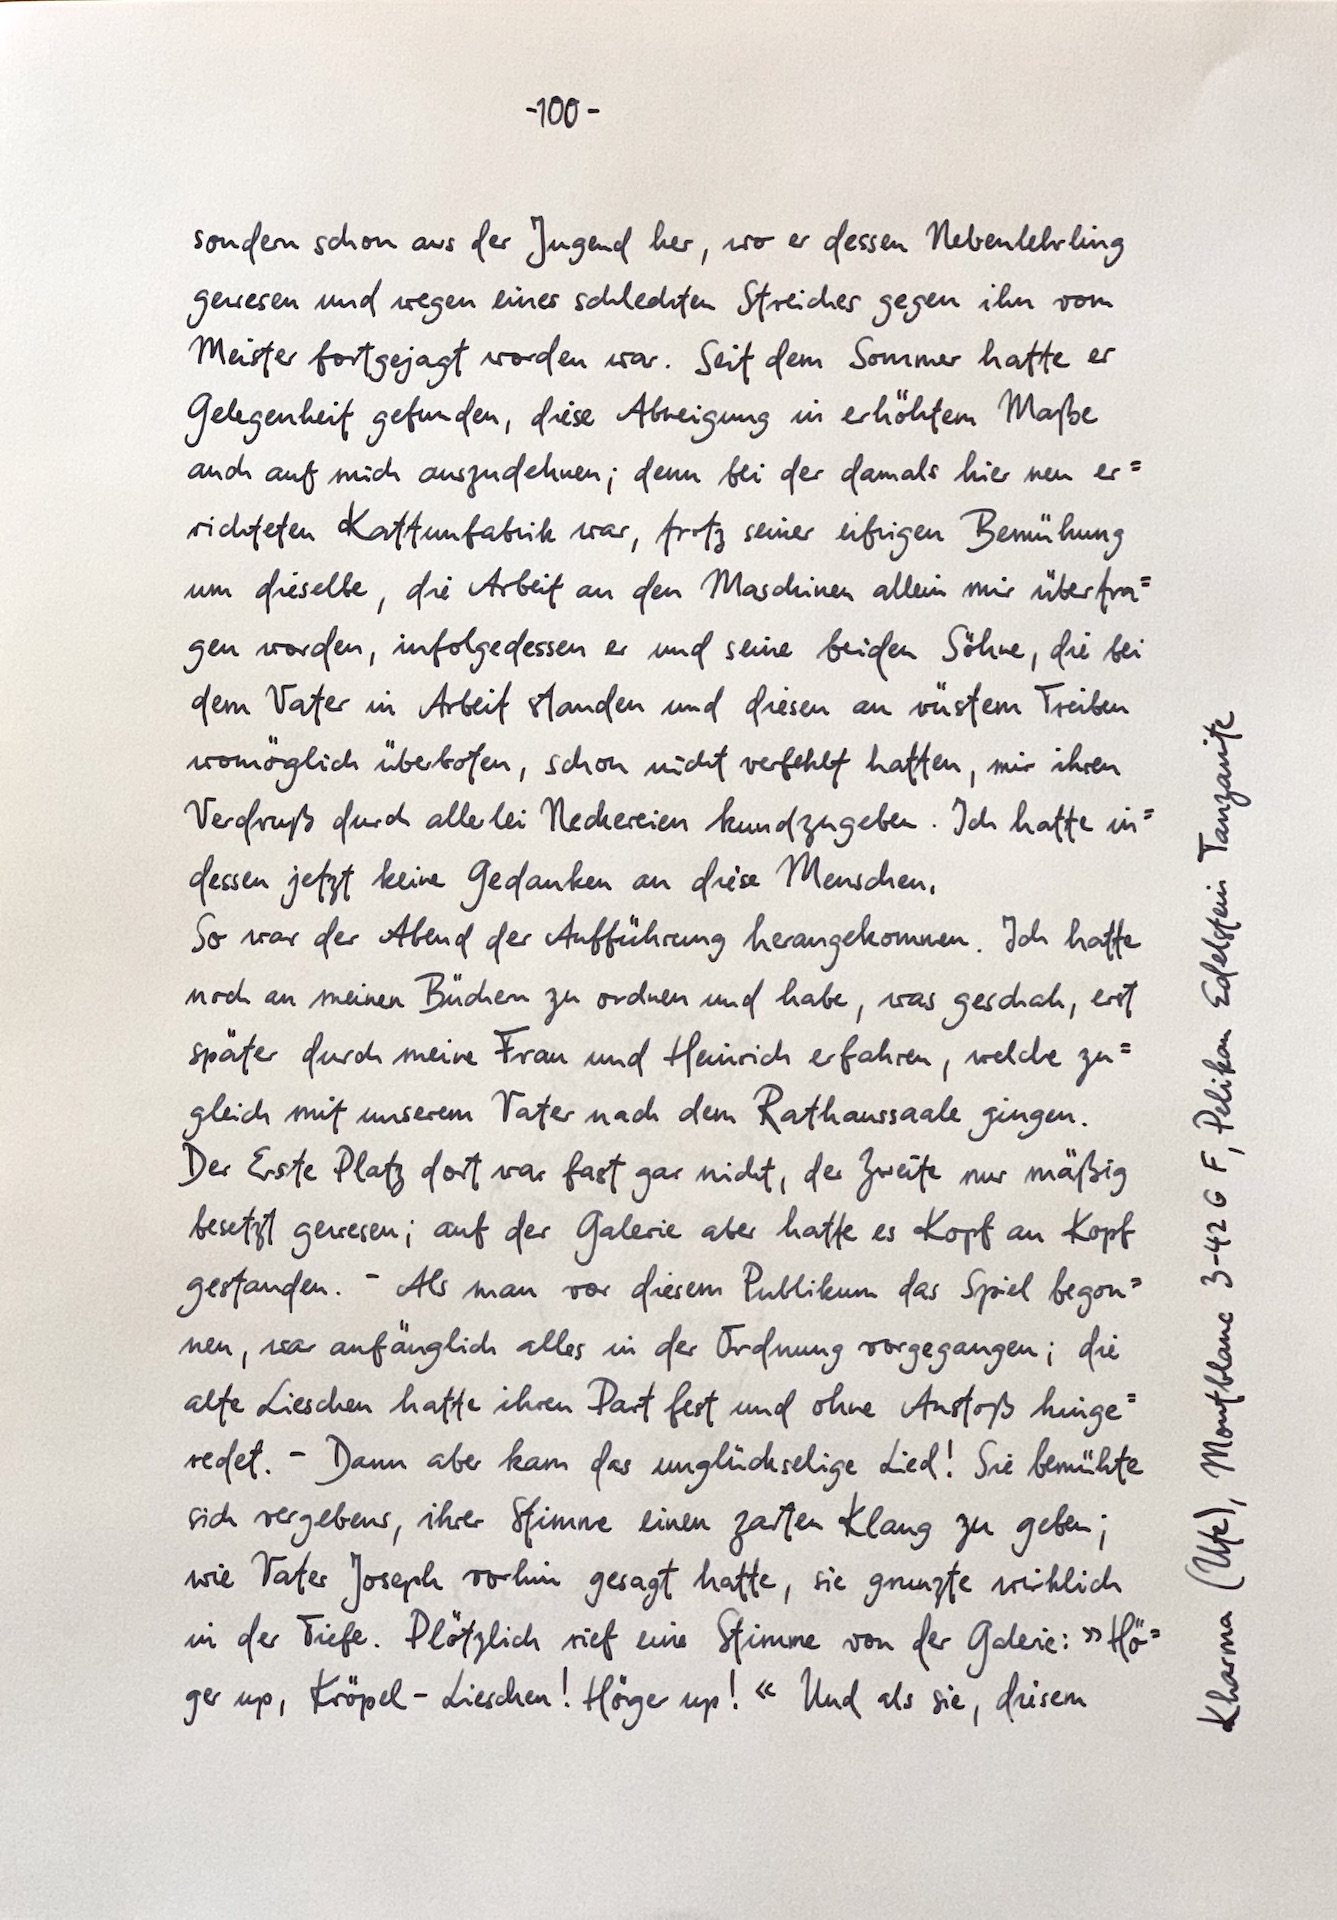 -100-
sondern schon aus der Jugend her, wo er dessen Nebenlehrling
gewesen und wegen eines schlechten Streiches gegen ihn vom
Meister fortgejagt worden war. Seit dem Sommer hatte er
Gelegenheit gefunden, diese Abneigung in erhöhtem Maße
auch auf mich auszudehnen; denn bei der damals hier neu er=
richteten Kattunfabrik war, trotz seiner eifrigen Bemühung
um dieselbe, die Arbeit an den Maschinen allein mir übertra=
gen worden, infolgedessen er und seine beiden Söhne, die bei
dem Vater in Arbeit standen und diesen an wüstem Treiben
womöglich überboten, schon nicht verfehlt hatten, mir ihren
Verdruß durch allerlei Neckereien kundzugeben. Ich hatte in=
dessen jetzt keine Gedanken an diese Menschen.
So war der Abend der Aufführung herangekommen. Ich hatte
noch an meinen Büchern zu ordnen und habe, was geschah, erst
später durch meine Frau und Heinrich erfahren, welche zu=
gleich mit unserem Vater nach dem Rathaussaale gingen.
Der Erste Platz dort war fast gar nicht, der Zweite nur mäßig
besetzt gewesen; auf der Galerie aber hatte es Kopf an Kopf
gestanden. - Als man vor diesem Publikum das Spiel begon=
nen, war anfänglich alles in der Ordnung vorgegangen; die
alte Lieschen hatte ihren Part fest und ohne Anstoß hinge=
redet. - Dann aber kam das unglückselige Lied! Sie bemühte
sich vergebens, ihrer Stimme einen zarten Klang zu geben;
wie Vater Joseph vorhin gesagt hatte, sie grunzte wirklich
in der Tiefe. Plötzlich rief eine Stimme von der Galerie: »Hö=
ger up, Kröpel-Lieschen! Höger up!« Und als sie, diesem
Kharma (Ute), Montblanc 3-42 G F, Pelikan Edelstein Tanzanite